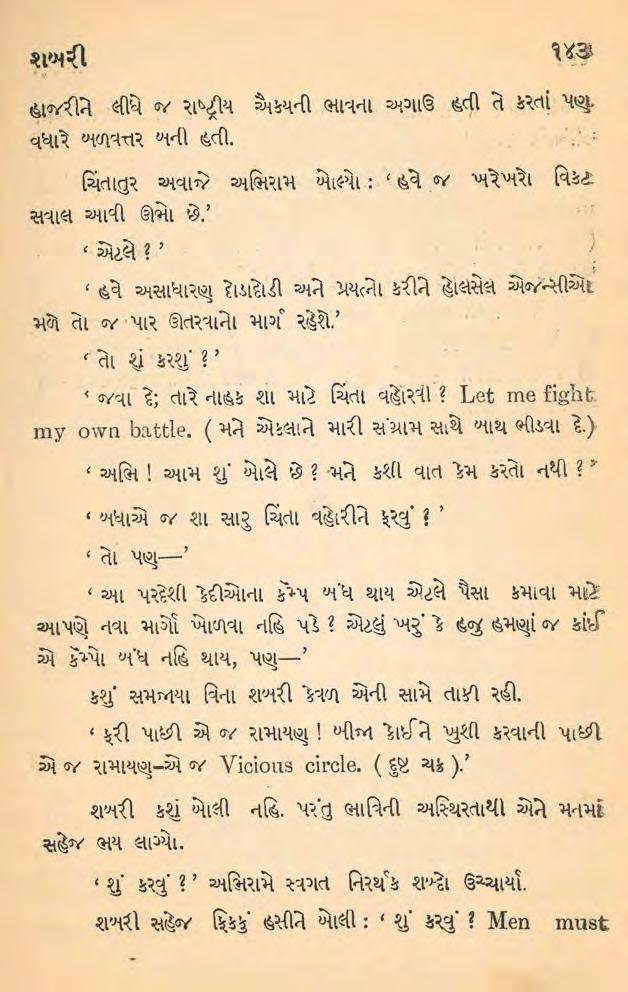 શબરી ૧૪૩
હાજરીને લીધે જ રાષ્ટ્રીય ઐક્યની ભાવના અગાઉ હતી તે કરતાં પણ
વધારે બળવત્તર બની હતી.
ચિંતાતુર અવાજે અભિરામ બોલ્યો : ‘ હવે જ ખરેખરો વિકટ
સવાલ આવી ઊભો છે.’
‘ એટલે ? ’
‘ હવે અસાધારણ દોડાદોડી અને પ્રયત્નો કરીને હોલસેલ એજન્સીઓ
મળે તો જ પાર ઊતરવાનો માર્ગ રહેશે.’
‘ તો શું કરશું ? ’
‘ જવા દે; તારે નાહક શા માટે ચિંતા વહોરવી ? Let me fight
my own battle. ( મને એકલાને મારી સંગ્રામ સાથે બાથ ભીડવા દે.)
‘ અભિ ! આમ શું બોલે છે ? મને કશી વાત કેમ કરતો નથી ? ’
‘ બધાએ જ શા સારુ ચિંતા વહોરીને ફરવું ? ’
‘ તો પણ—’
‘ આ પરદેશી કેદીઓના કૅમ્પ બંધ થાય એટલે પૈસા કમાવા માટે
આપણે નવા માર્ગો ખોળવા નહિ પડે ? એટલું ખરું કે હજુ હમણાં જ કાંઈ
એ કૅમ્પો બંધ નહિ થાય, પણ—’
કશું સમજ્યા વિના શબરી કેવળ એની સામે તાકી રહી.
‘ ફરી પાછી એ જ રામાયણ ! બીજા કોઈને ખુશી કરવાની પાછી
એ જ રામાયણ-એ જ Vicious circle. ( દુષ્ટ ચક્ર ).’
શબરી કશું બોલી નહિ. પરંતુ ભાવિની અસ્થિરતાથી એને મનમાં
સહેજ ભય લાગ્યો.
‘ શું કરવું ? ’ અભિરામે સ્વગત નિરર્થક શબ્દો ઉચ્ચાર્યા.
શબરી સહેજ ફિક્કું હસીને બોલી : ‘ શું કરવું ? Men must